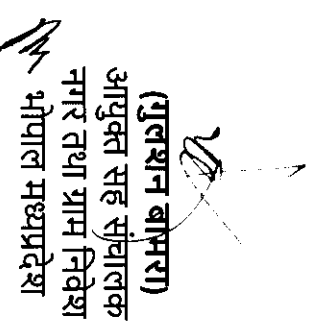 (गुलशन बामरा)
आयुक्त सह संचालक
नगर तथा ग्राम निवेश
भोपाल मध्यप्रदेश